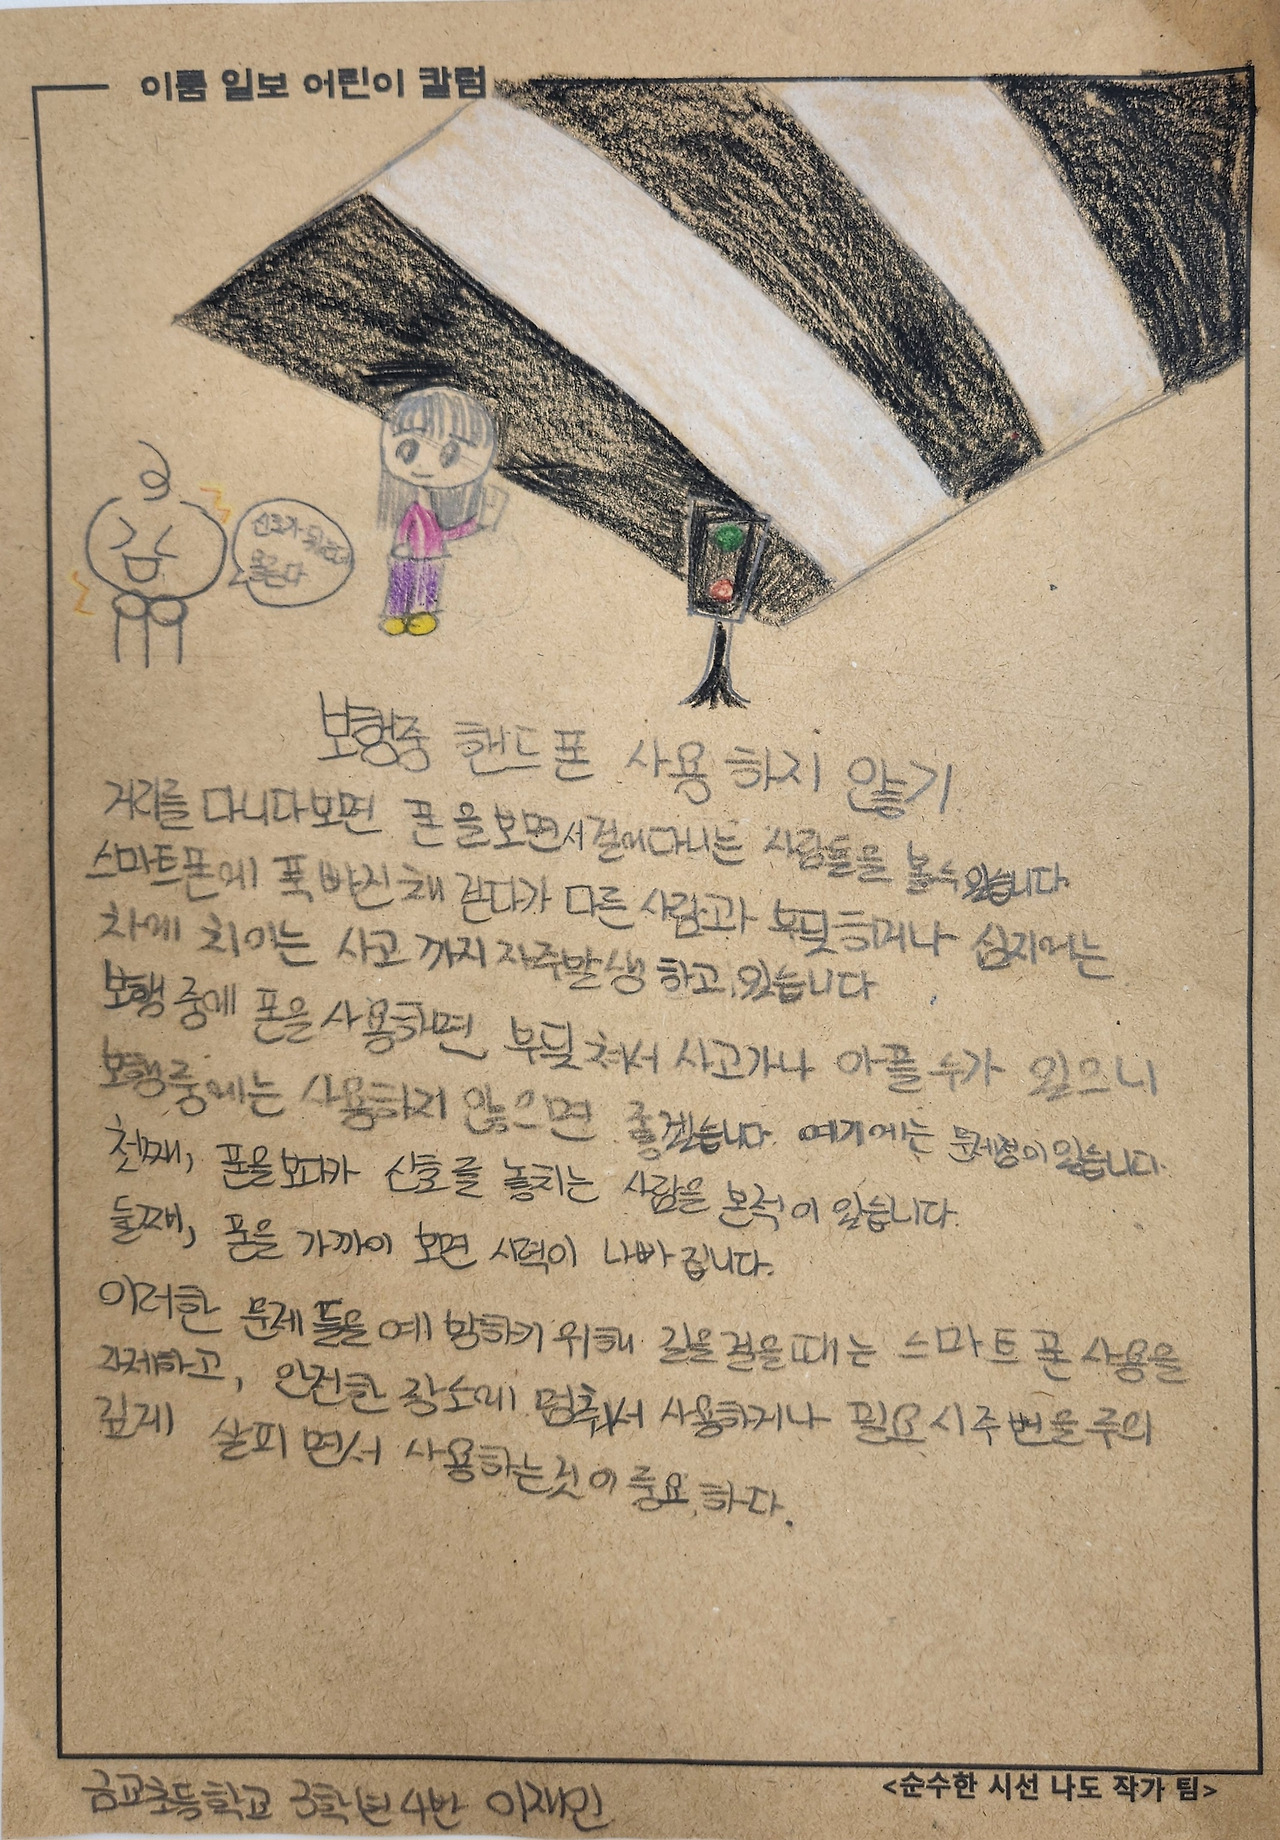 이룸 일보 어린이 칼럼
신호가 됬는데
모른다
보행중 핸드폰 사용 하지 않기
거리를 다니다보면 폰을보면서걸어다니는 사람들을 볼수있습니다.
스마트폰에 푹 빠진채 걷다가 다른 사람과 부딪히거나 심지어는
차에 치이는 사고까지 자주발생하고있습니다
보행중에 폰을사용하면 부딪쳐서 사고가나 아플수가 있으니
보행중에는 사용하지 않으면 좋겠습니다. 여기에는 문제점이있습니다.
첫째, 폰을보다가 신호를 놓치는 사람을 본적이 있습니다.
둘째, 폰을 가까이 보면 시력이 나빠집니다.
이러한 문제들을예방하기위해 길을걸을때는 스마트폰사용을
자제하고, 안전한 장소에 멈춰서 사용하거나 필요시주변을주의
깊게 살피면서 사용하는것이중요하다.
금교초등학교 3학년4반 이재민
<순수한 시선 나도 작가 팀>